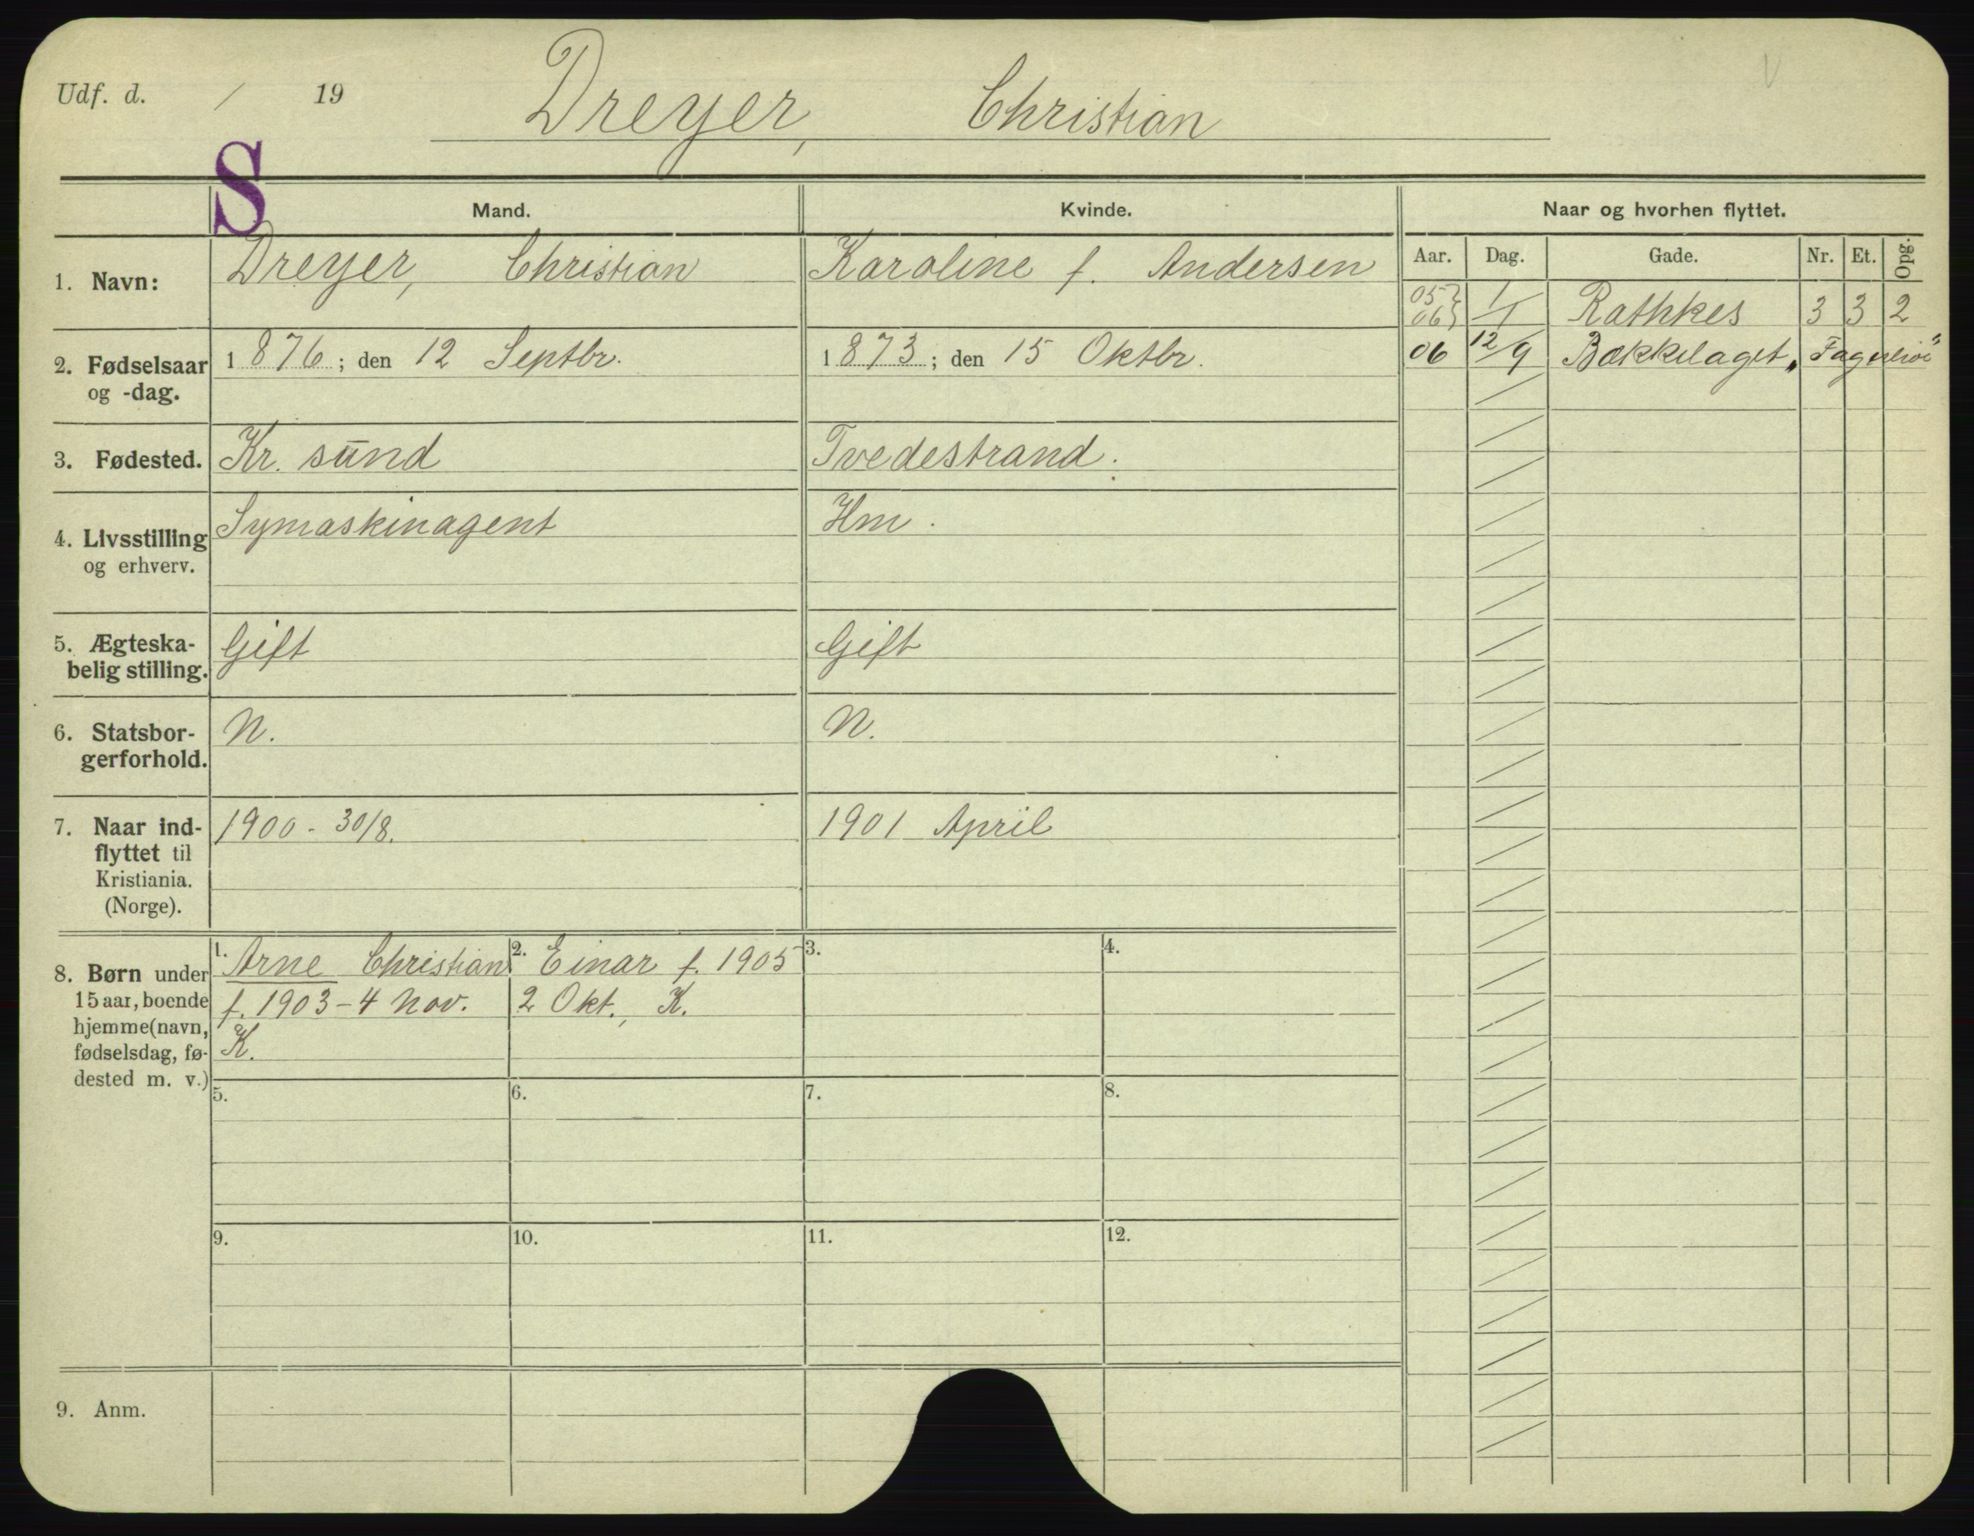 Udf. d. / 19
Dreyer, Christian
S
Mand. Kvinde. Naar og hvorhen flyttet.
Aar. Dag. Gade. Nr. Et. Opg.
1. Navn: Dreyer, Christian Karoline f. Andersen
05 } 06 } 1/1 Rathkes 3 3 2
06 12/9 Bækkelaget, "Fagerlivi"
2. Fødselsaar 1876; den 12 Septbr. 1873; den 15 Oktbr.
og -dag.
3. Fødested. Kr. sund Tvedestrand.
4. Livsstilling Symaskinagent Hm.
og erhverv.
5. Ægteska- Gift Gift
belig stilling.
6. Statsbor- N. N.
gerforhold.
7. Naar ind- 1900 - 30/8. 1901 April
flyttet til
Kristiania.
(Norge).
8. Børn under 1. Arne Christian 2. Einar f. 1905 3. 4.
15 aar, boende f. 1903 - 4 Nov. 2 Okt., K.
hjemme (navn, K.
fødselsdag, fø-
dested m. v.)
5. 6. 7. 8.
9. 10. 11. 12.
9. Anm.